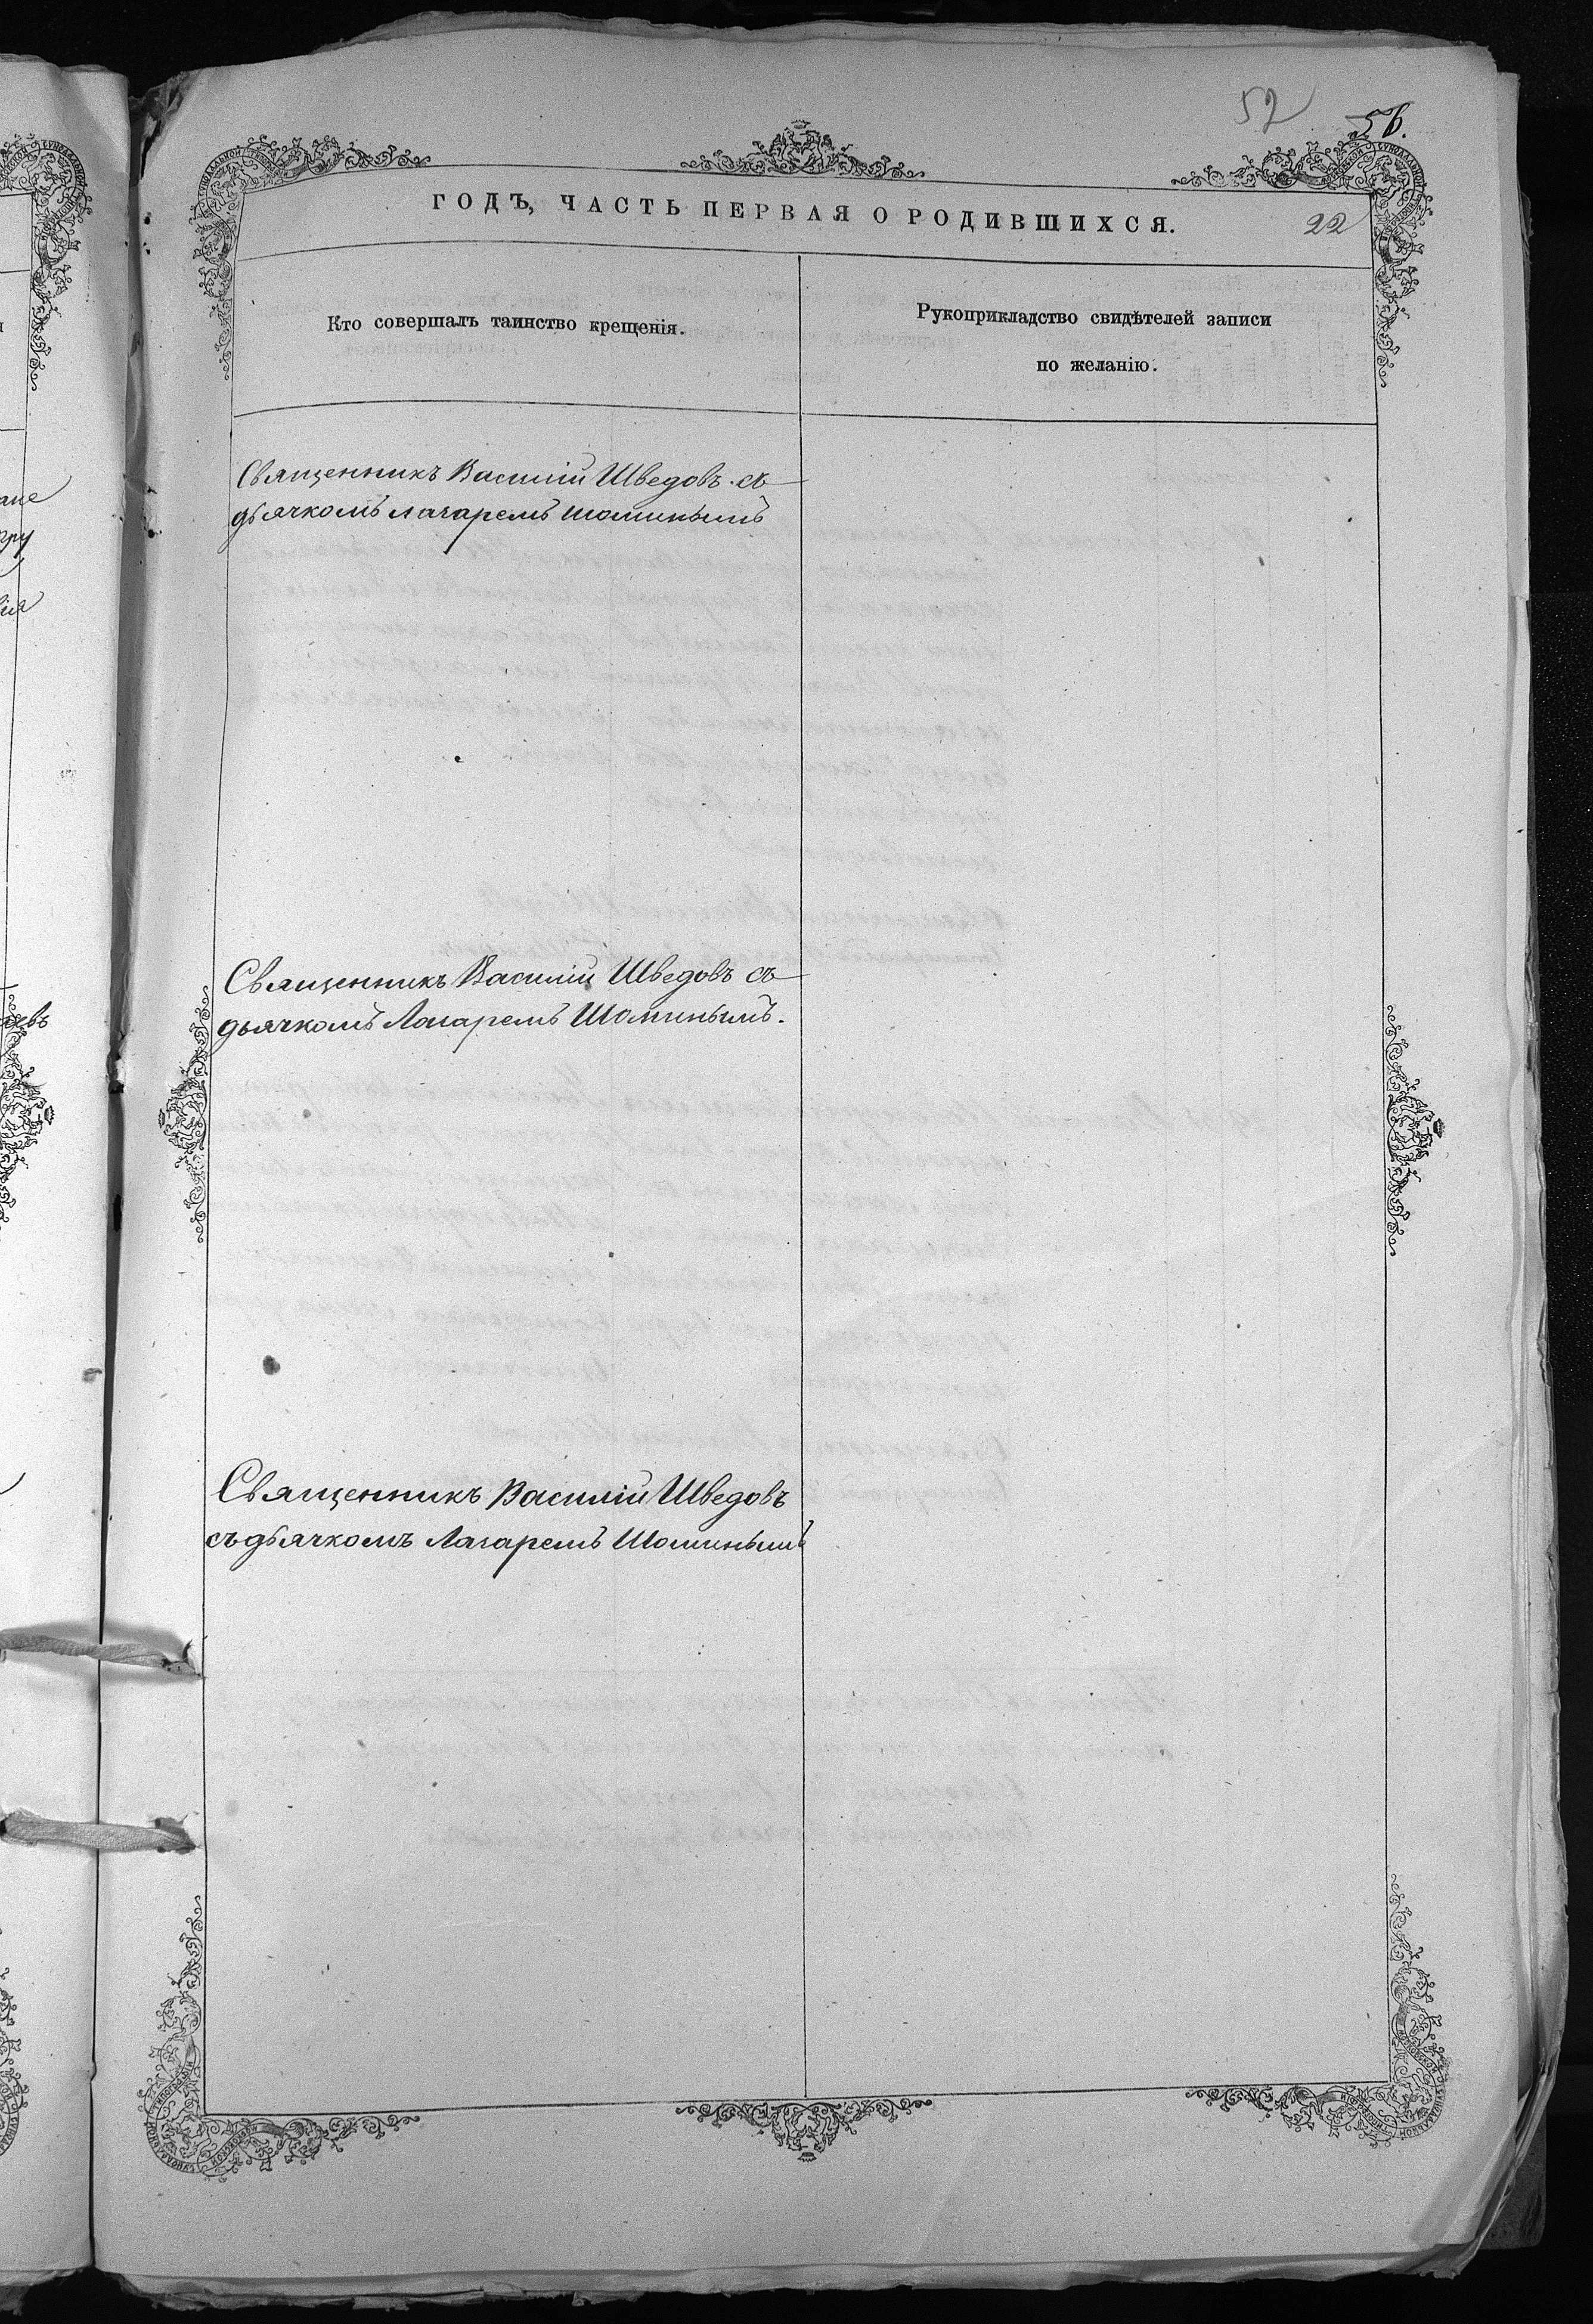 52
56.
ГОДЪ, ЧАСТЬ ПЕРВАЯ О РОДИВШИХСЯ.
22
Кто совершалъ таинство крещенія.
Рукоприкладство свидѣтелей записи
по желанію.
Священникъ Василій Шведовъ. съ
дьячкомъ Лазаремъ Шоминымъ
Священникъ Василій Шведовъ съ
дьячкомъ Лазаремъ Шоминымъ.
Священникъ Василій Шведовъ
съ дьячкомъ Лазаремъ Шоминымъ